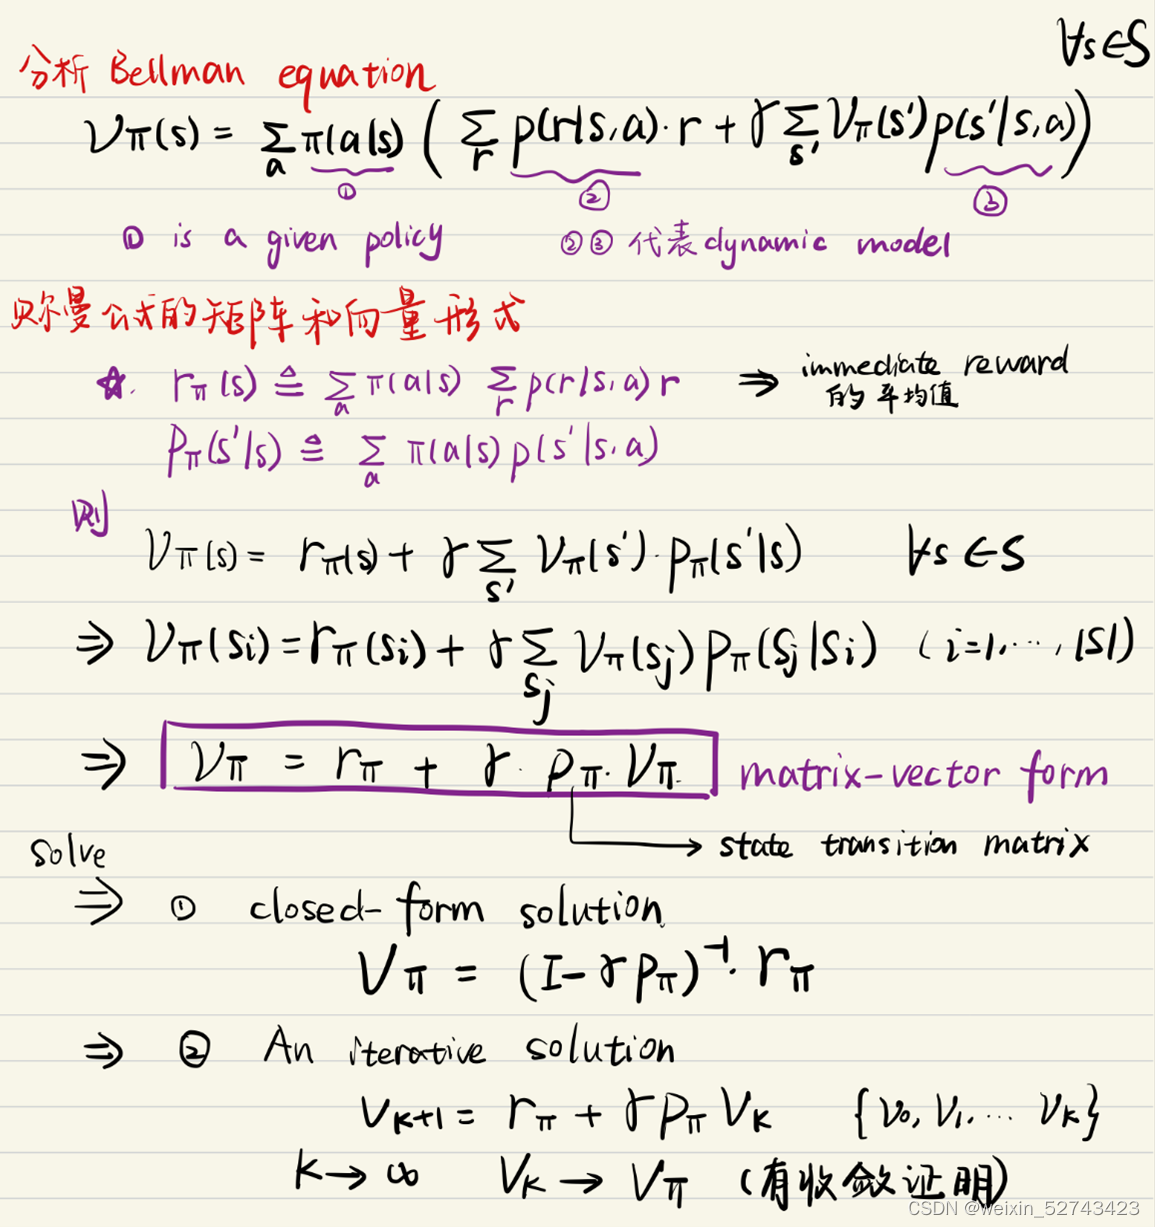 ∀s∈S
分析 Bellman equation
νπ(s) = Σa π(a|s) ( Σr p(r|s,a)·r + γ Σs' νπ(s')p(s'|s,a) )
① ② ③
① is a given policy ②③ 代表dynamic model
贝尔曼公式的矩阵和向量形式
☆. rπ(s) ≜ Σa π(a|s) Σr p(r|s,a) r ⇒ immediate reward
的平均值
Pπ(s'|s) ≜ Σa π(a|s) p(s'|s,a)
则
νπ(s) = rπ(s) + γ Σs' νπ(s')·pπ(s'|s) ∀s∈S
⇒ νπ(si) = rπ(si) + γ Σsj νπ(sj) pπ(sj|si) (i=1,…,|S|)
⇒ νπ = rπ + γ·pπ·νπ. matrix-vector form
→ state transition matrix
solve
⇒ ① closed-form solution
νπ = (I-γpπ)⁻¹·rπ
⇒ ② An iterative solution
νk+1 = rπ + γpπνk {ν0,ν1,… νk}
k→∞ νk→νπ (有收敛证明)
CSDN @weixin_52743423